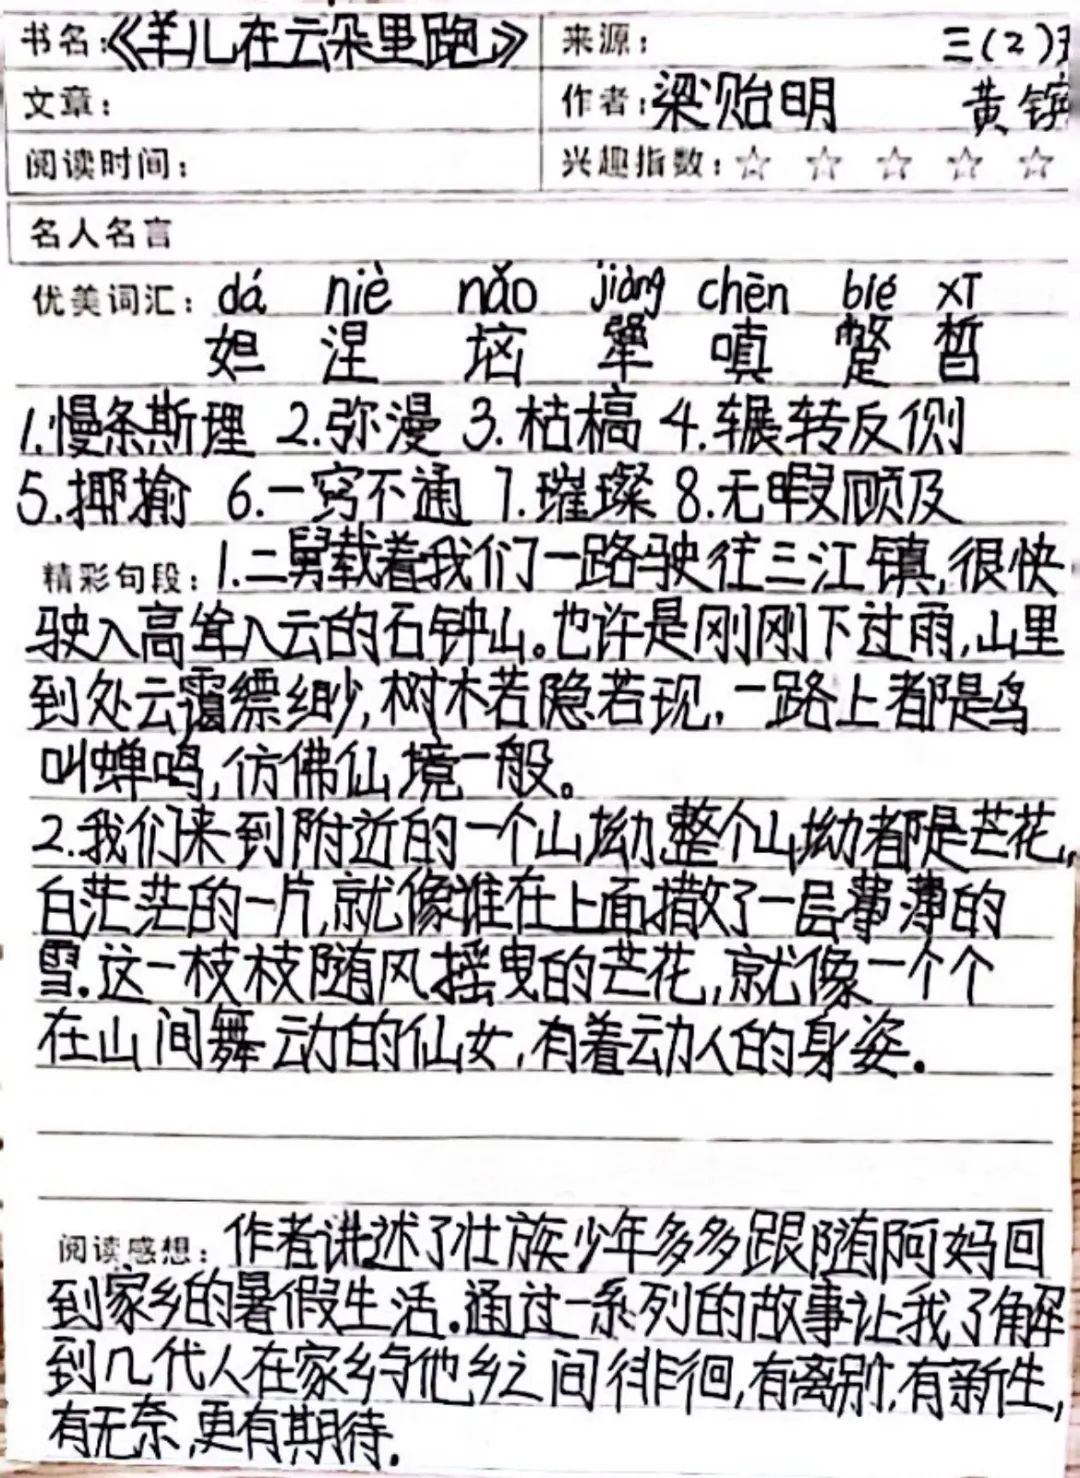 书名:《羊儿在云朵里跑》 来源: 三(2)
文章: 作者:梁贻明 黄镔
阅读时间: 兴趣指数:☆ ☆ ☆ ☆ ☆
名人名言
优美词汇: dá niè nǎo jiàng chēn bié xī
妲 涅 垴 犟 嗔 蹩 皙
1.慢条斯理 2.弥漫 3.枯槁 4.辗转反侧
5.揶揄 6.一窍不通 7.璀璨 8.无暇顾及
精彩句段: 1.二舅载着我们一路驶往三江镇,很快
驶入高耸入云的石钟山。也许是刚刚下过雨,山里
到处云霭缥缈,树木若隐若现,一路上都是鸟
叫蝉鸣,仿佛仙境一般。
2.我们来到附近的一个山坳,整个山坳都是芒花,
白茫茫的一片,就像谁在上面撒了一层薄薄的
雪.这一枝枝随风摇曳的芒花,就像一个个
在山间舞动的仙女,有着动人的身姿.
阅读感想: 作者讲述了壮族少年多多跟随阿妈回
到家乡的暑假生活.通过一系列的故事让我了解
到几代人在家乡与他乡之间徘徊,有离别,有新生,
有无奈,更有期待.